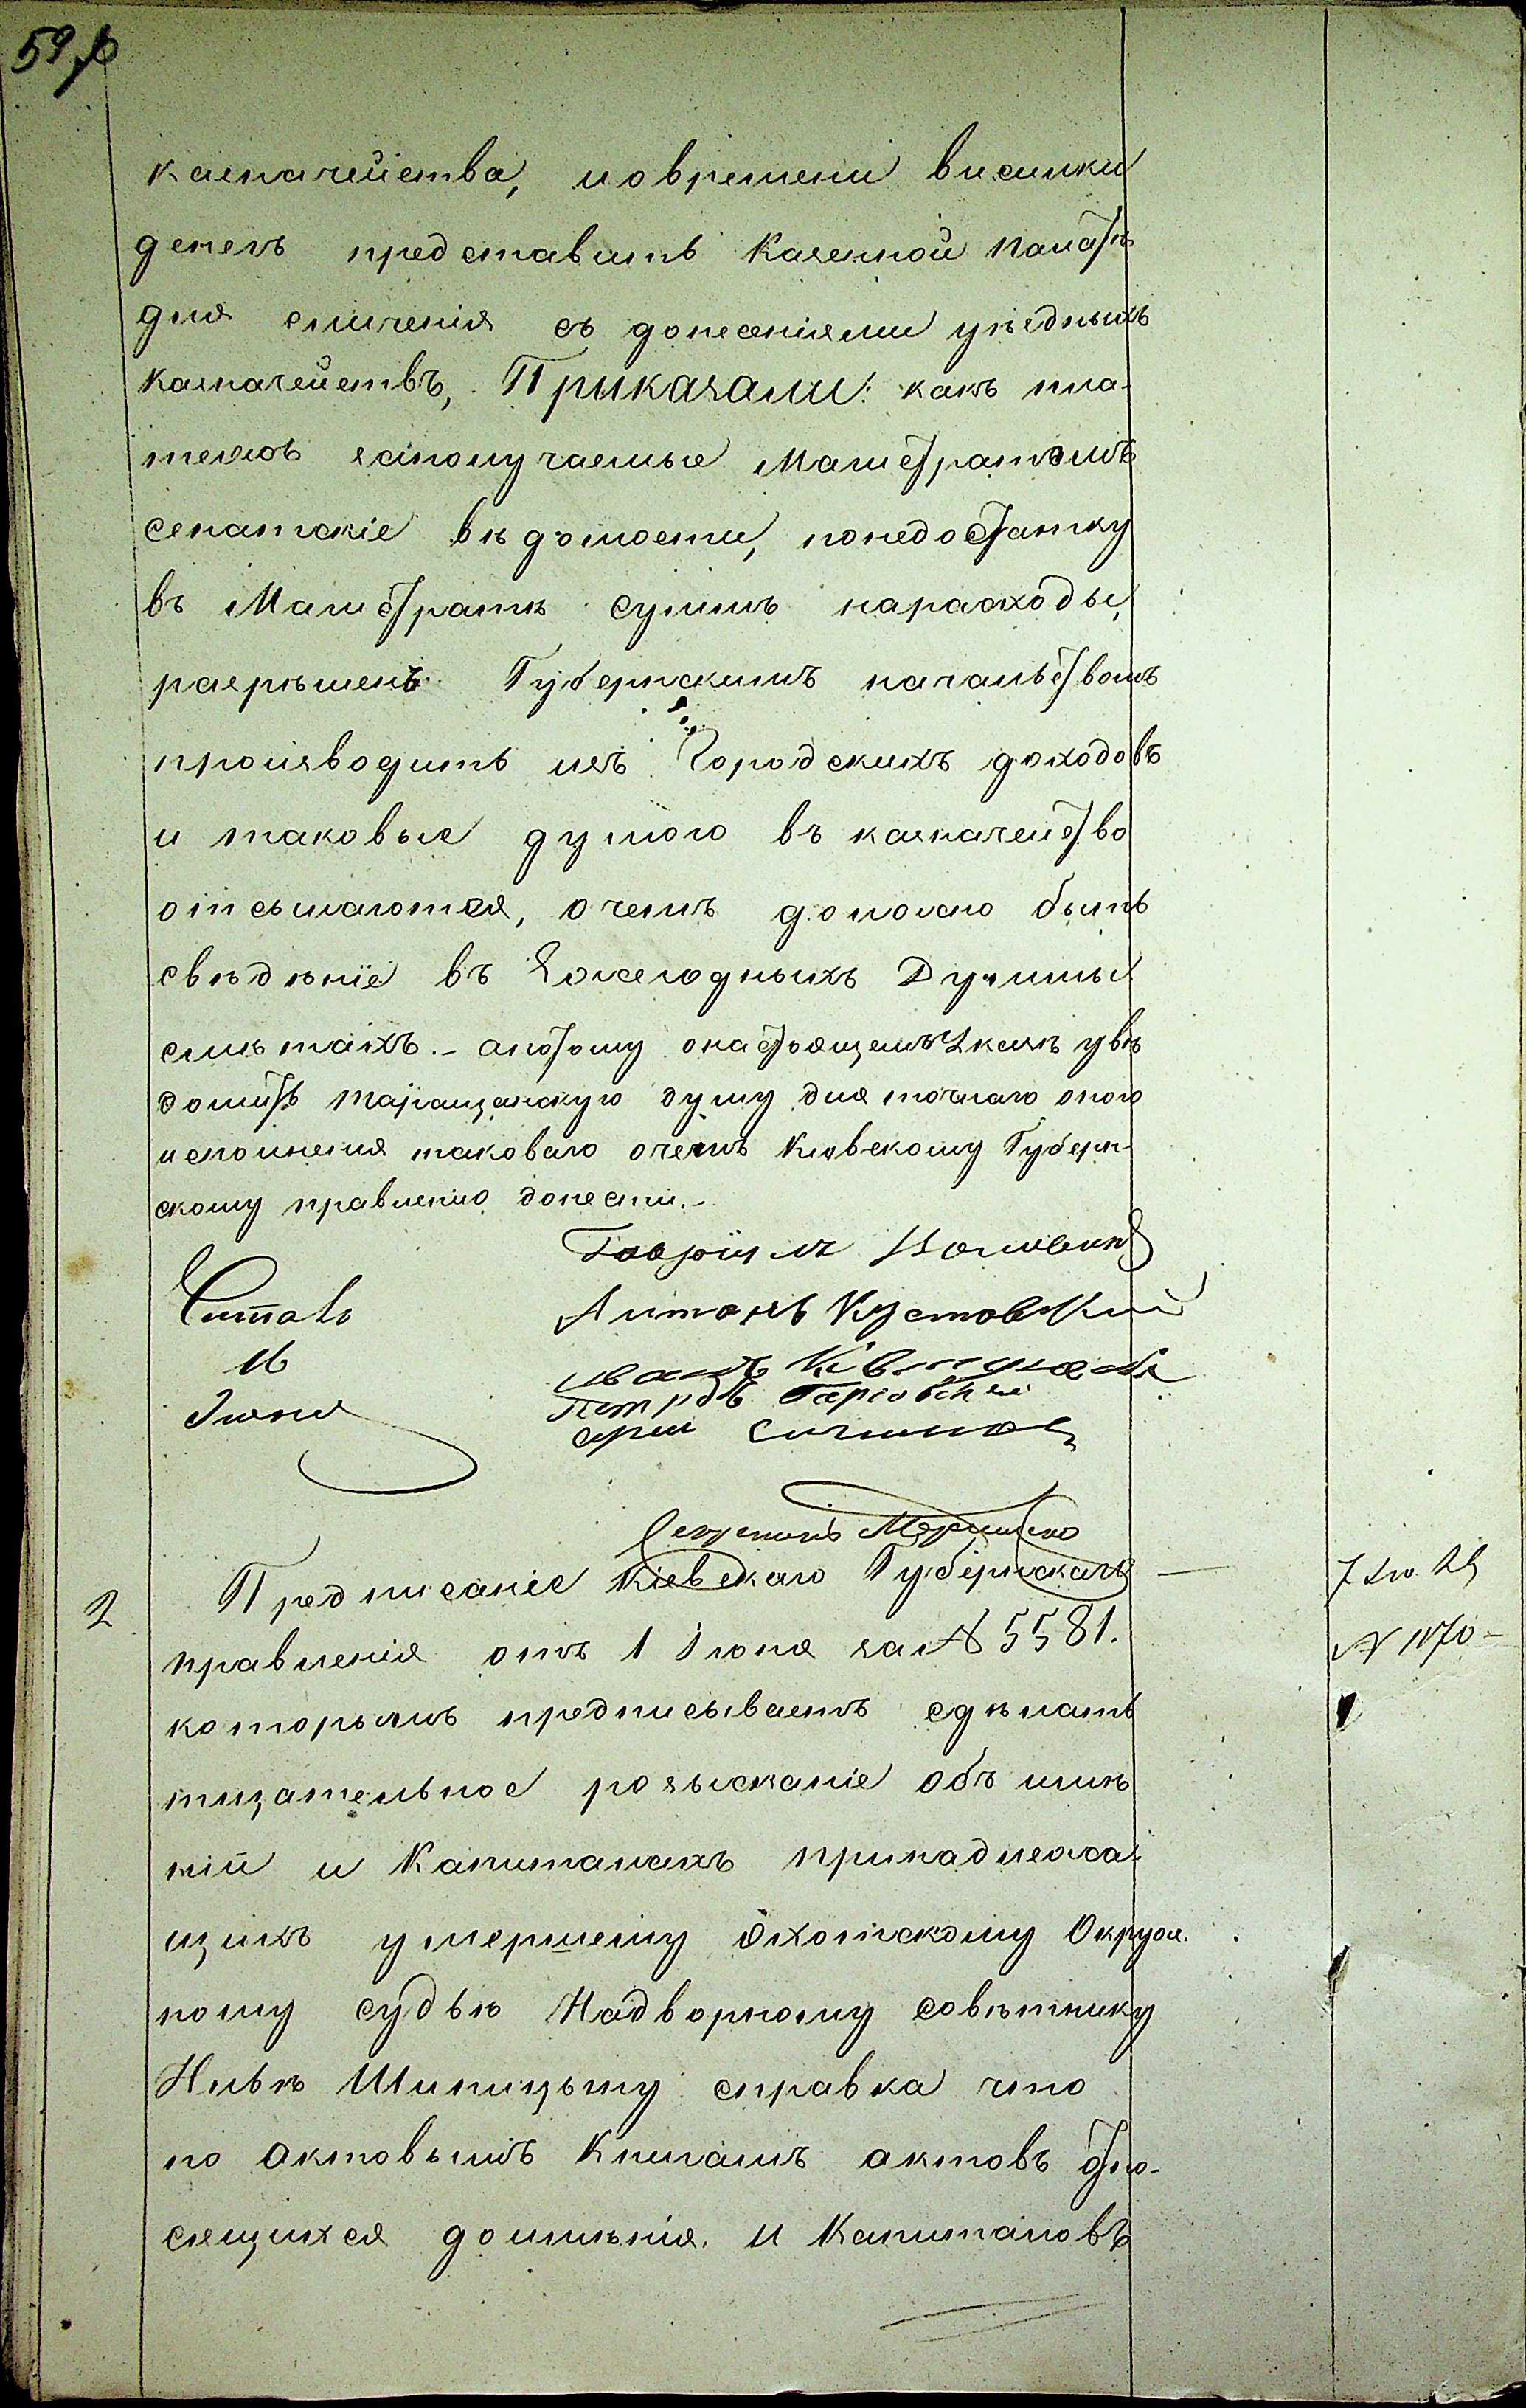 казначейства, повремени висилки
денегъ представить Казенной палатѣ
для сличенія съ донесеніями уѣздныхъ
казначействъ, Приказали: какъ пла-
тежъ заполучаемые Магистратомъ
сенатскіе вѣдомости, понедостатку
въ Магистратѣ суммъ нарасходы,
разрѣшенъ Губернскимъ начальствомъ
производить изъ Городскихъ доходовъ
и таковые думою въ казначейство
отсылаются, очемъ должно быть
свѣдѣніе въ Ежегодныхъ Думы
смѣтахъ. - апотому онастоящемъ увѣ
домить Таращанскую думу для точнаго оного
исполненія таковаго очемъ Кіевскому Губерн-
скому правленію донести. -
Гавріилъ
Читалъ
Антонъ Кустовскій
16
Іюня
Петръ
2
Предписаніе Кіевскаго Губернскаго
правленія отъ 1 Іюня за № 5581.
которымъ предписываетъ сдѣлать
тщательное розысканіе объ имѣ
ній и Капиталахъ принадлежа-
щихъ умершему Охотскому Окруж-
ному судьѣ Надворному совѣтнику
справка что
по актовымъ Книгамъ актовъ отно-
сящихся доимѣнія и Капиталовъ
№ 1170 -